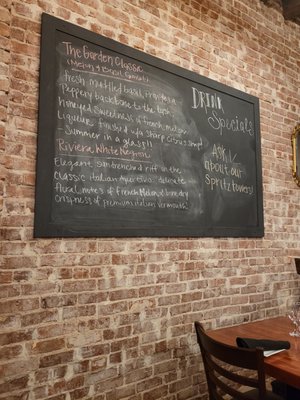 The Garden Glacée
(Melon & Basil Gimlet)
- Fresh muddled basil, provide a
peppery backbone to the lush
honeyed sweetness of french melon
Liqueur, finished w/a sharp citrus snap!
- Summer in a glass!!
Riviera White Negroni
Elegant, sun drenched riff on the
classic Italian Aperitivo: delicate
floral notes of French Melon & bone dry
crispness of premium italian vermouth!
DRINK
Specials
ASK
about our
Spritz towers!